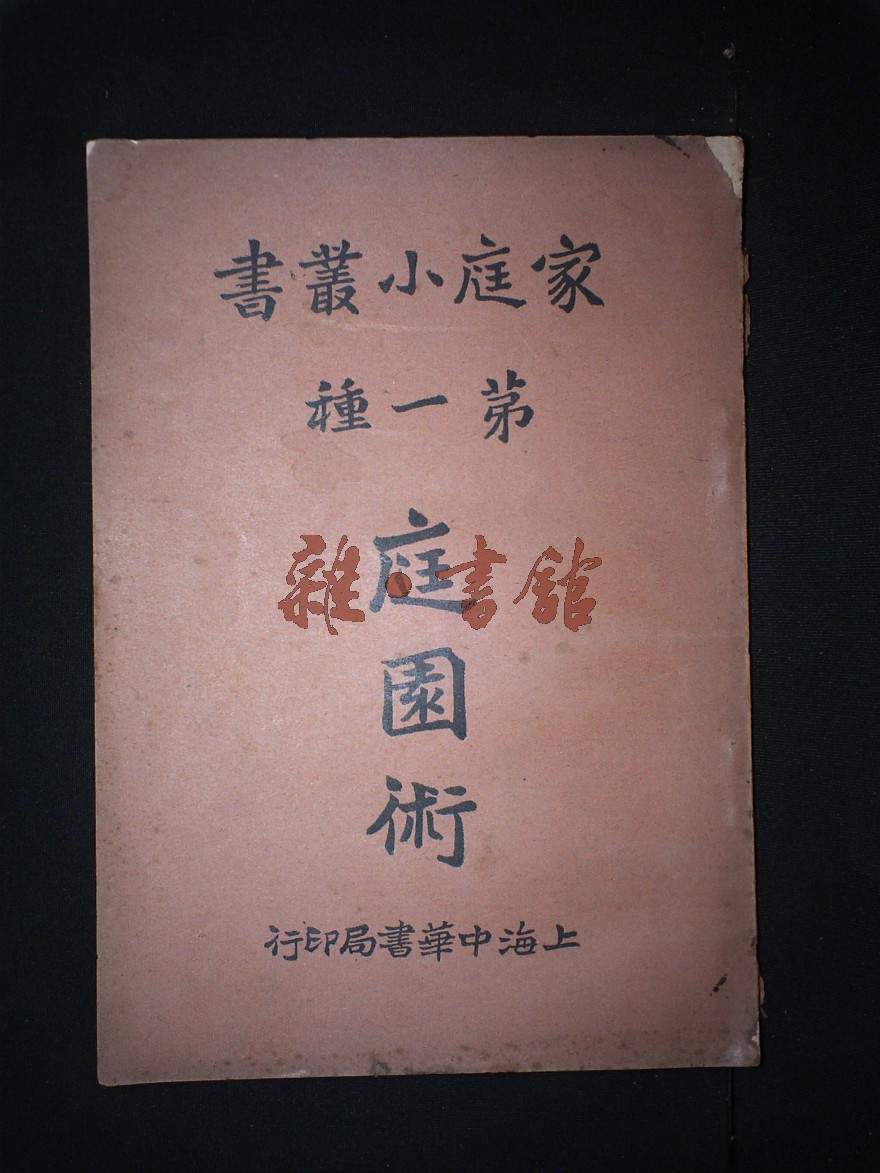 家庭小叢書
第一種
庭園術
雜·書館
上海中華書局印行